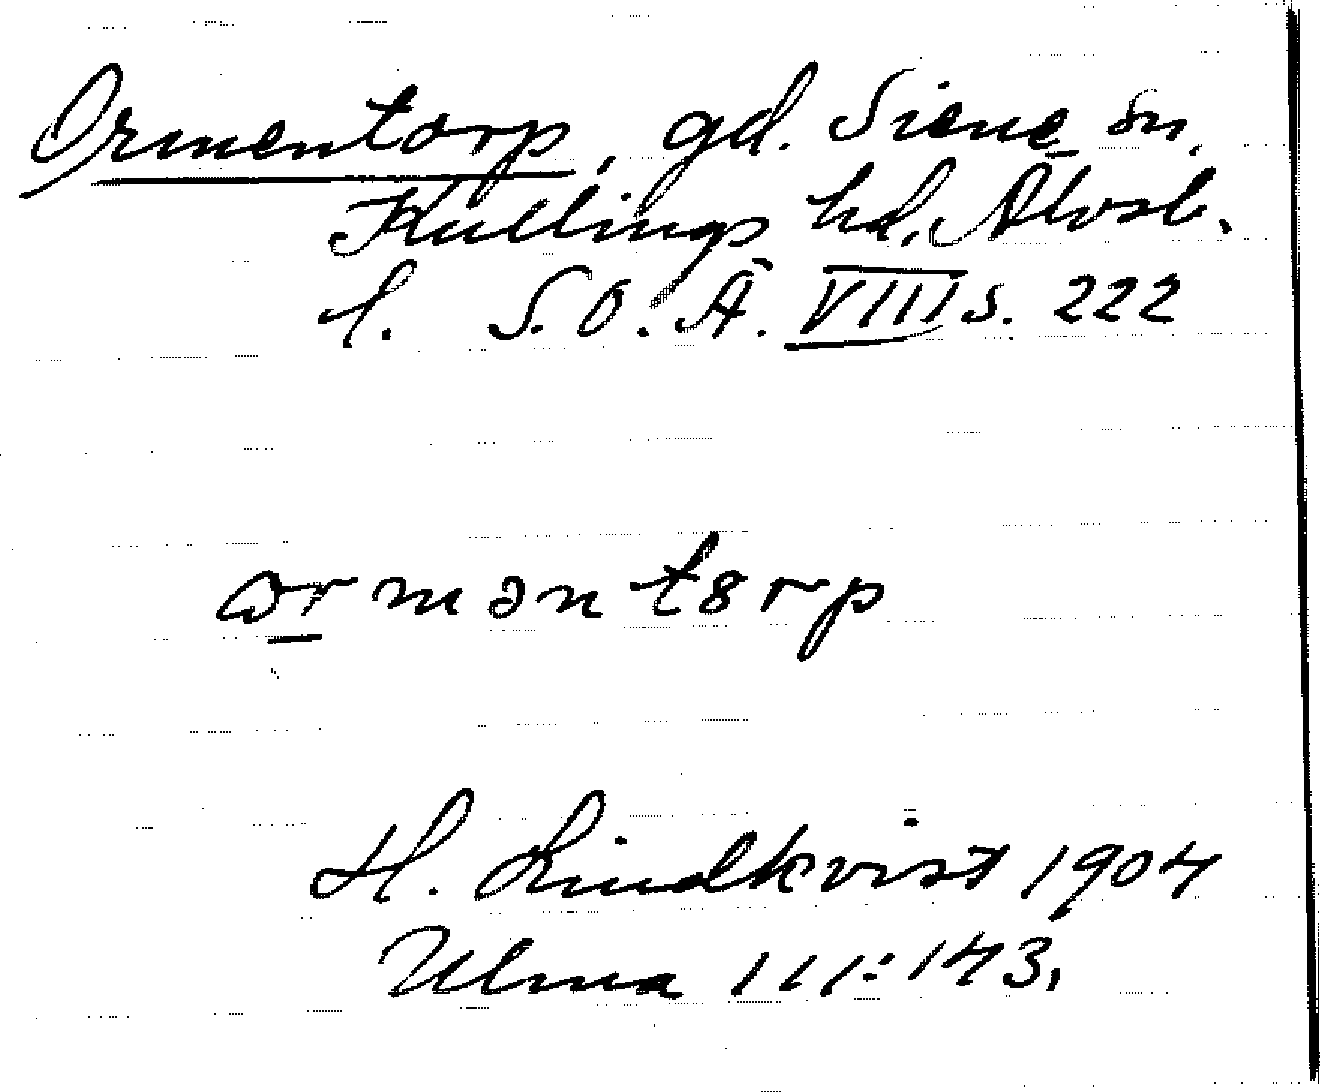 Ormentorp, gd. Siene sn,
Kullings hd, Älvsb.
l. S.O.Ä. VIII s. 222
ormən tərp
H. Lindkvist 1904
Ulma 111:143.